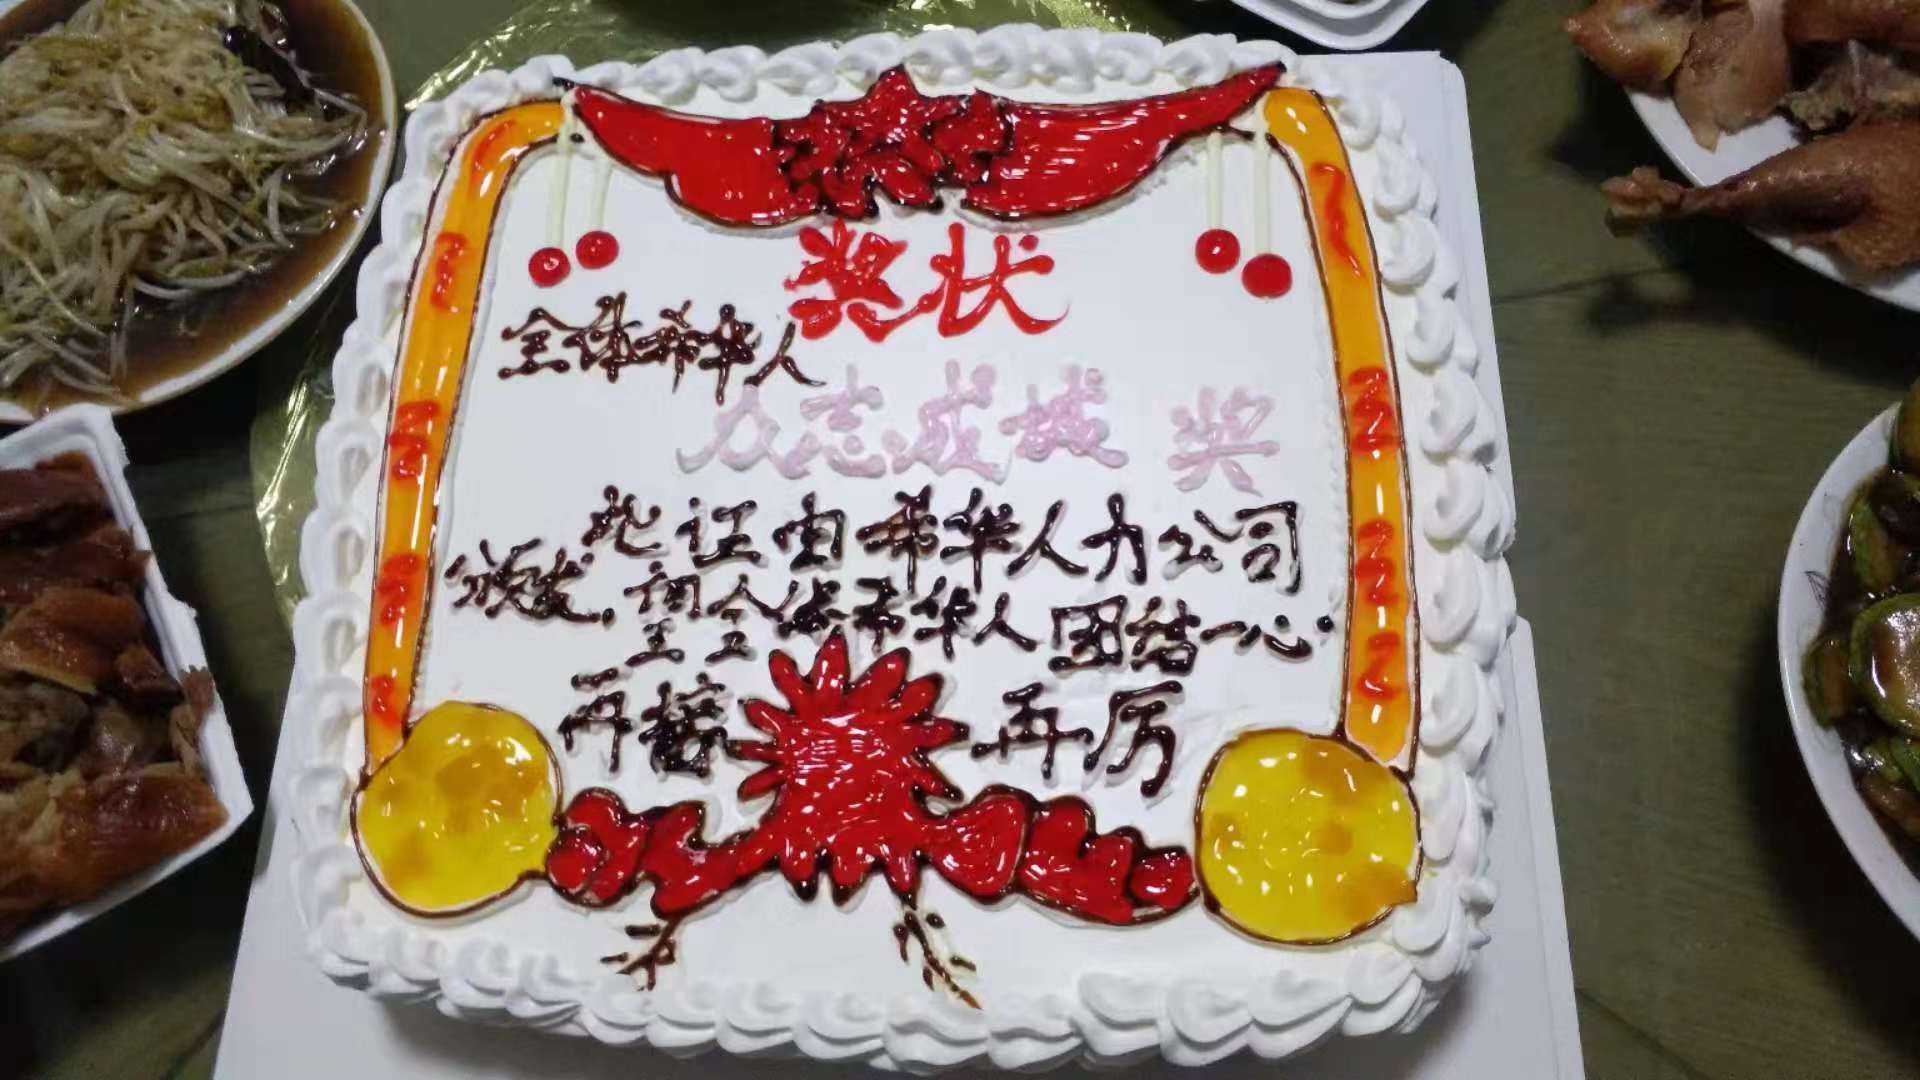 奖状
全体希华人
众志成城 奖
此证由希华人力公司
颁发,望全体希华人团结一心
再接 再厉